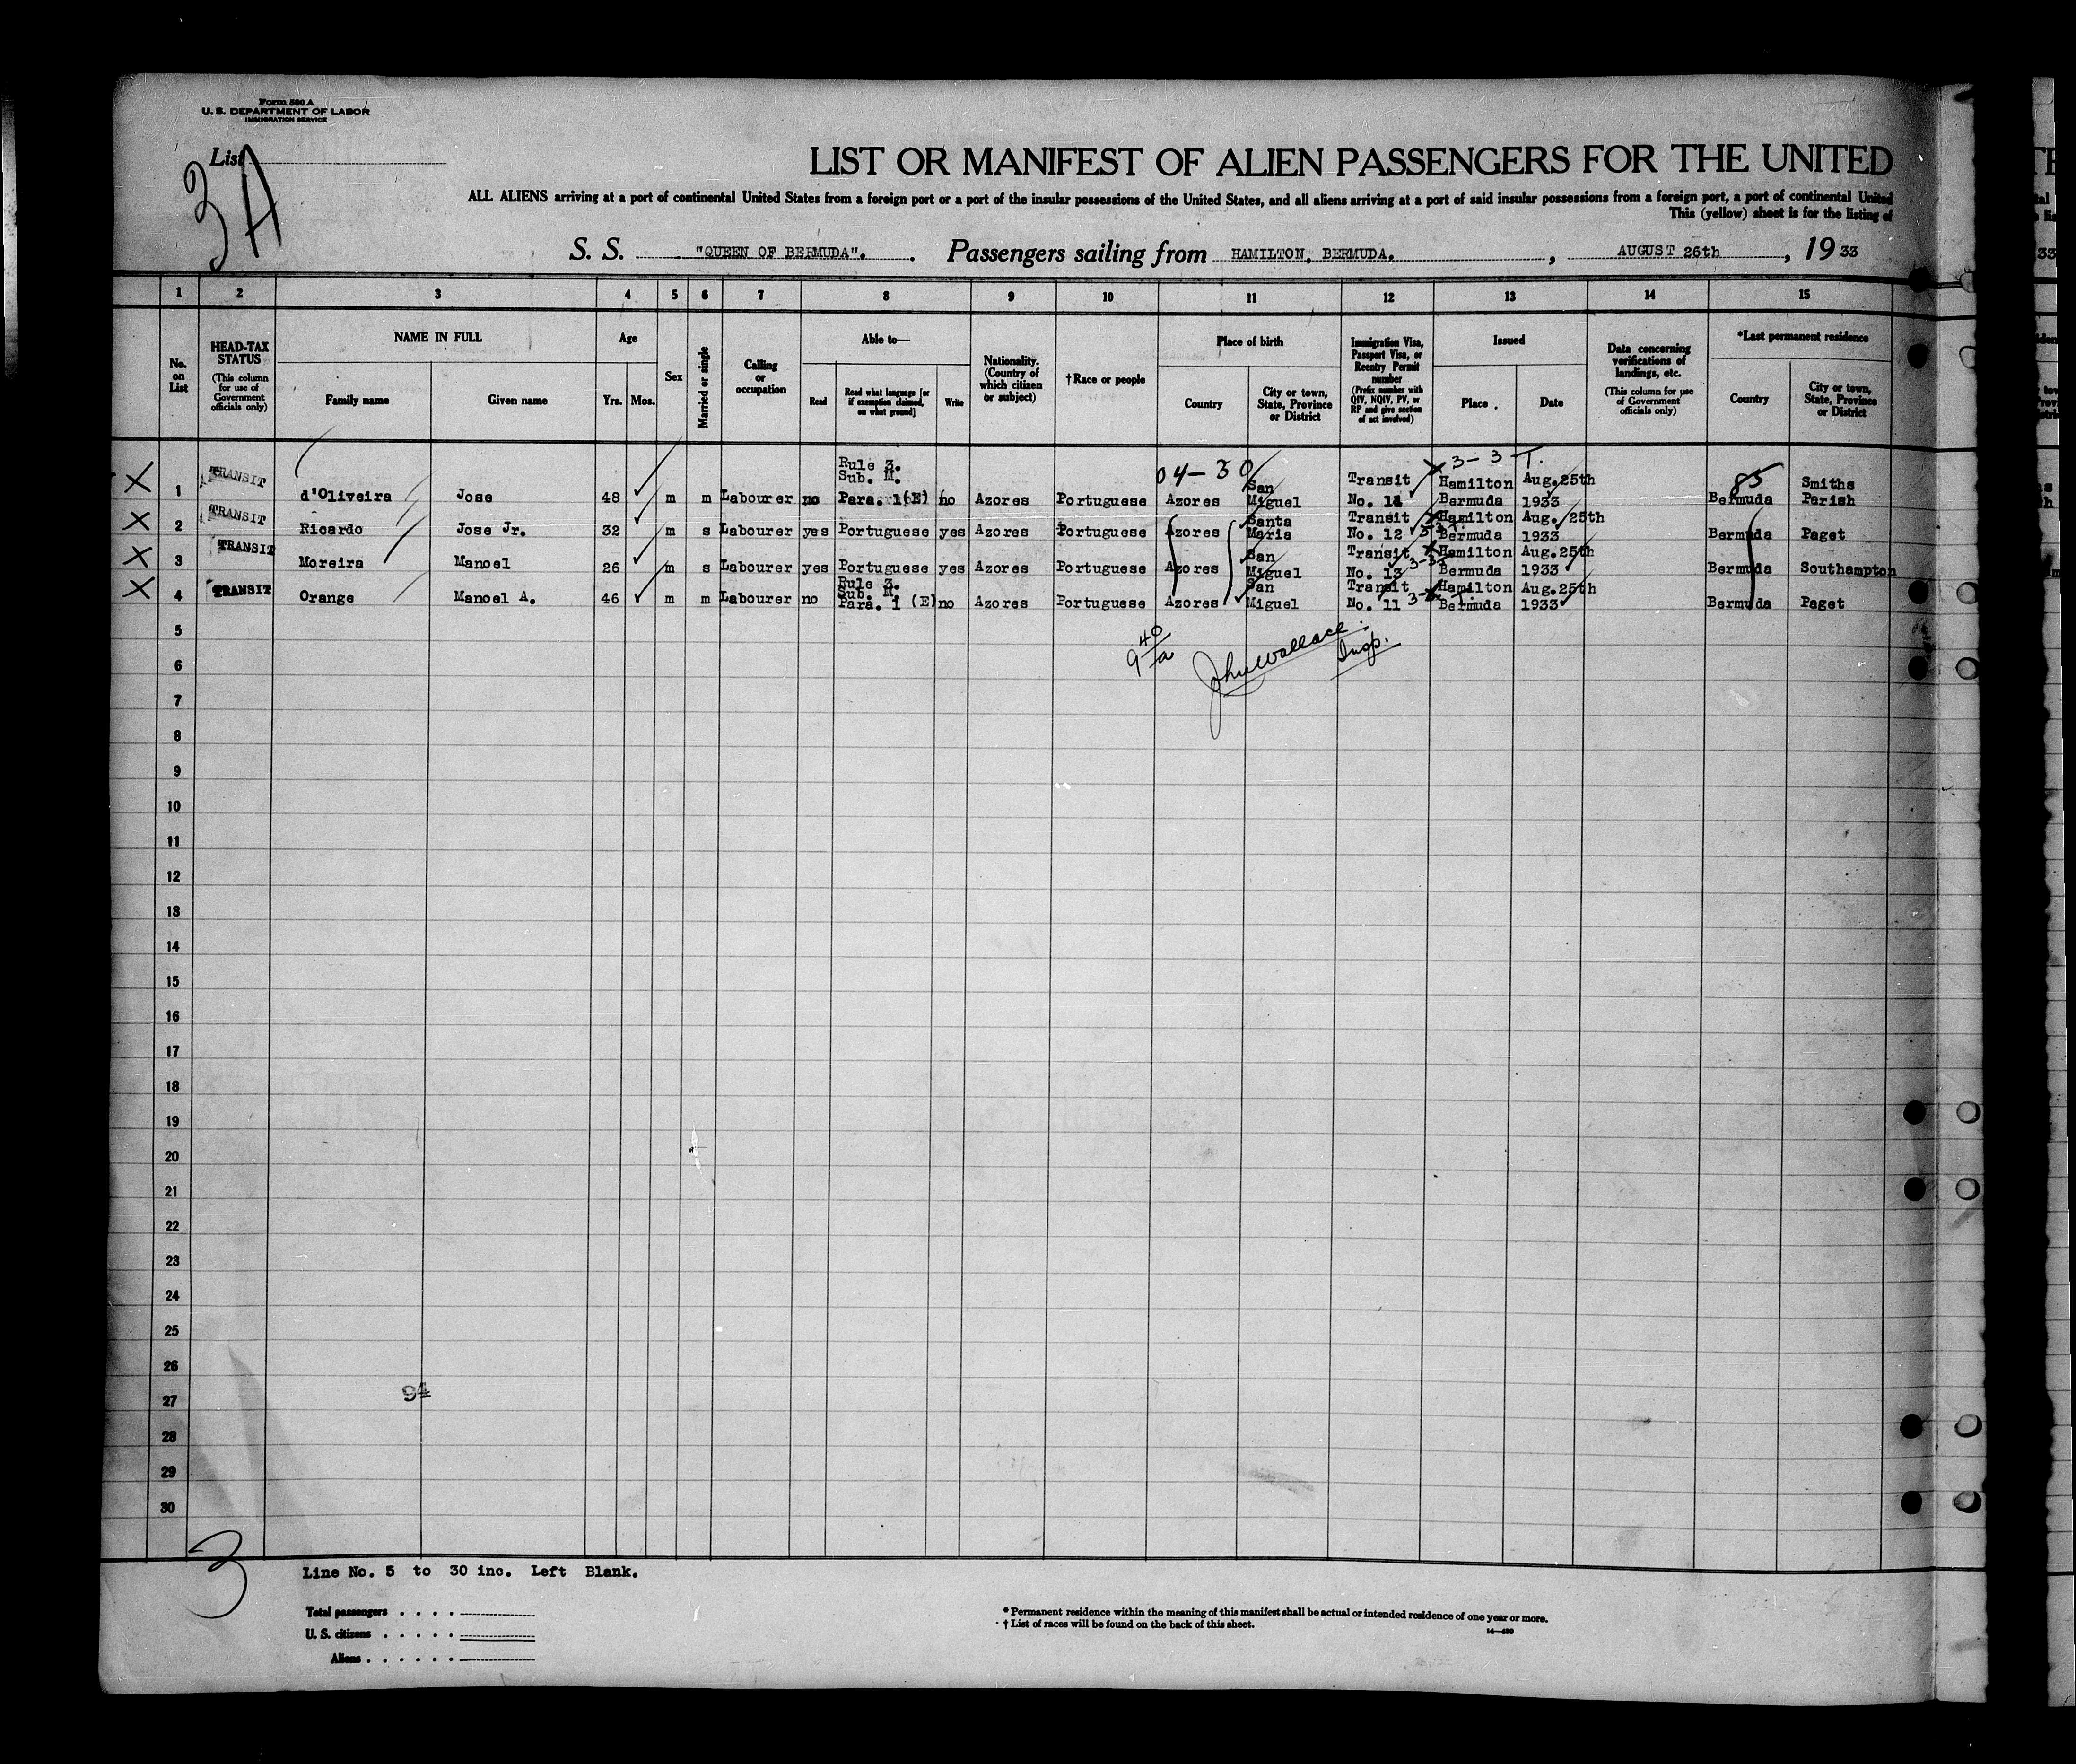 Form 500 A
U. S. DEPARTMENT OF LABOR
IMMIGRATION SERVICE
List
3A
LIST OR MANIFEST OF ALIEN PASSENGERS FOR THE UNITED
ALL ALIENS arriving at a port of continental United States from a foreign port or a port of the insular possessions of the United States, and all aliens arriving at a port of said insular possessions from a foreign port, a port of continental United
This (yellow) sheet is for the listing of
S. S. "QUEEN OF BERMUDA". Passengers sailing from HAMILTON, BERMUDA. , AUGUST 26th , 19 33
1 2 3 4 5 6 7 8 9 10 11 12 13 14 15
No. on List
HEAD-TAX STATUS (This column for use of Government officials only)
NAME IN FULL
Family name
Given name
Age
Yrs. Mos.
Sex
Married or single
Calling or occupation
Able to—
Read
Read what language [or if exemption claimed, on what ground]
Write
Nationality. (Country of which citizen or subject)
†Race or people
Place of birth
Country
City or town, State, Province or District
Immigration Visa, Passport Visa, or Reentry Permit number (Prefix number with QIV, NQIV, PV, or RP and give section of act involved)
Issued
Place
Date
Data concerning verifications of landings, etc. (This column for use of Government officials only)
*Last permanent residence
Country
City or town, State, Province or District
04-30
3-3 T.
85
X TRANSIT 1 d'Oliveira Jose 48 m m Labourer no Rule 3. Sub. M. Para. 1(E) no Azores Portuguese Azores San Miguel Transit No. 14 Hamilton Bermuda Aug.25th 1933 Bermuda Smiths Parish
X TRANSIT 2 Ricardo Jose Jr. 32 m s Labourer yes Portuguese yes Azores Portuguese Azores Santa Maria Transit No. 12 Hamilton Bermuda Aug. 25th 1933 Bermuda Paget
X TRANSIT 3 Moreira Manoel 26 m s Labourer yes Portuguese yes Azores Portuguese Azores San Miguel Transit No. 13 Hamilton Bermuda Aug.25th 1933 Bermuda Southampton
X TRANSIT 4 Orange Manoel A. 46 m m Labourer no Rule 3. Sub. M. Para. 1 (E) no Azores Portuguese Azores San Miguel Transit No. 11 Hamilton Bermuda Aug.25th 1933 Bermuda Paget
5
9 40/a John Wallace. Insp.
6
7
8
9
10
11
12
13
14
15
16
17
18
19
20
21
22
23
24
25
26
94
27
28
29
30
3
Line No. 5 to 30 inc. Left Blank.
Total passengers . . . .
U. S. citizens . . . . .
Aliens . . . . . .
* Permanent residence within the meaning of this manifest shall be actual or intended residence of one year or more.
† List of races will be found on the back of this sheet.
14—430